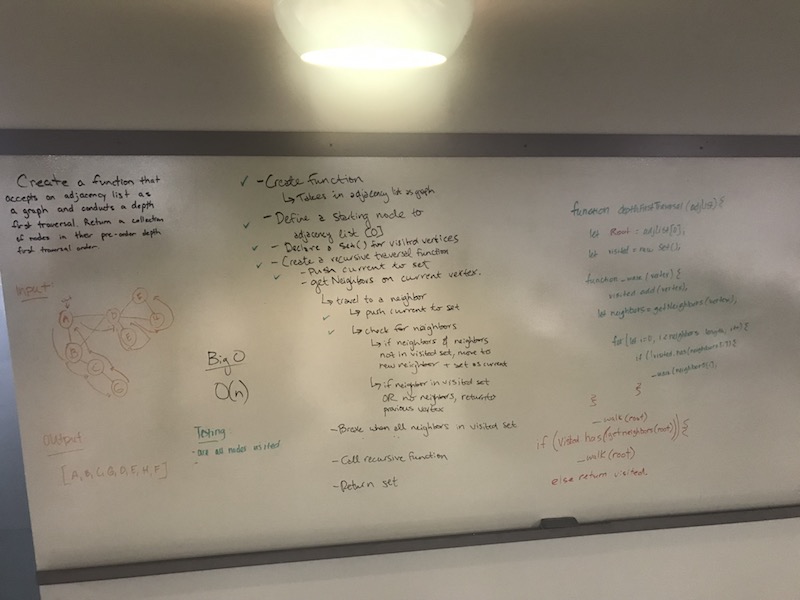 Create a function that
accepts an adjacency list as
a graph and conducts a depth
first traversal. Return a collection
of nodes in their pre-order depth
first traversal order.
Input:
A
D
B
C
G
E
Output
[A, B, C, G, D, E, H, F]
Big O
O(n)
Testing
- all nodes visited
-
✓ - Create Function
↳ Takes in adjacency list as graph
✓ - Define a starting node to
adjacency list [0]
✓ - Declare a Set() for visited vertices
✓ - Create a recursive traversal function
✓ - Push current to set
- get Neighbors on current vertex.
↳ travel to a neighbor
✓ ↳ push current to set
✓ ↳ check for neighbors
↳ if neighbors of neighbors
not in visited set, move to
new neighbor + set as current
↳ if neighbor in visited set
OR no neighbors, return to
previous vertex
- Break when all neighbors in visited set
- Call recursive function
- Return set
function depthFirstTraversal (adjlist) {
let Root = adjlist[0];
let visited = new Set();
function _walk (vertex) {
visited.add(vertex);
let neighbors = getNeighbors(vertex);
for (let i=0; i < neighbors.length; i++) {
if (!visited.has(neighbors[i])) {
_walk(neighbors[i]);
}
}
_walk(root)
if (visited.has(getneighbors(root))) {
_walk(root)
else return visited.